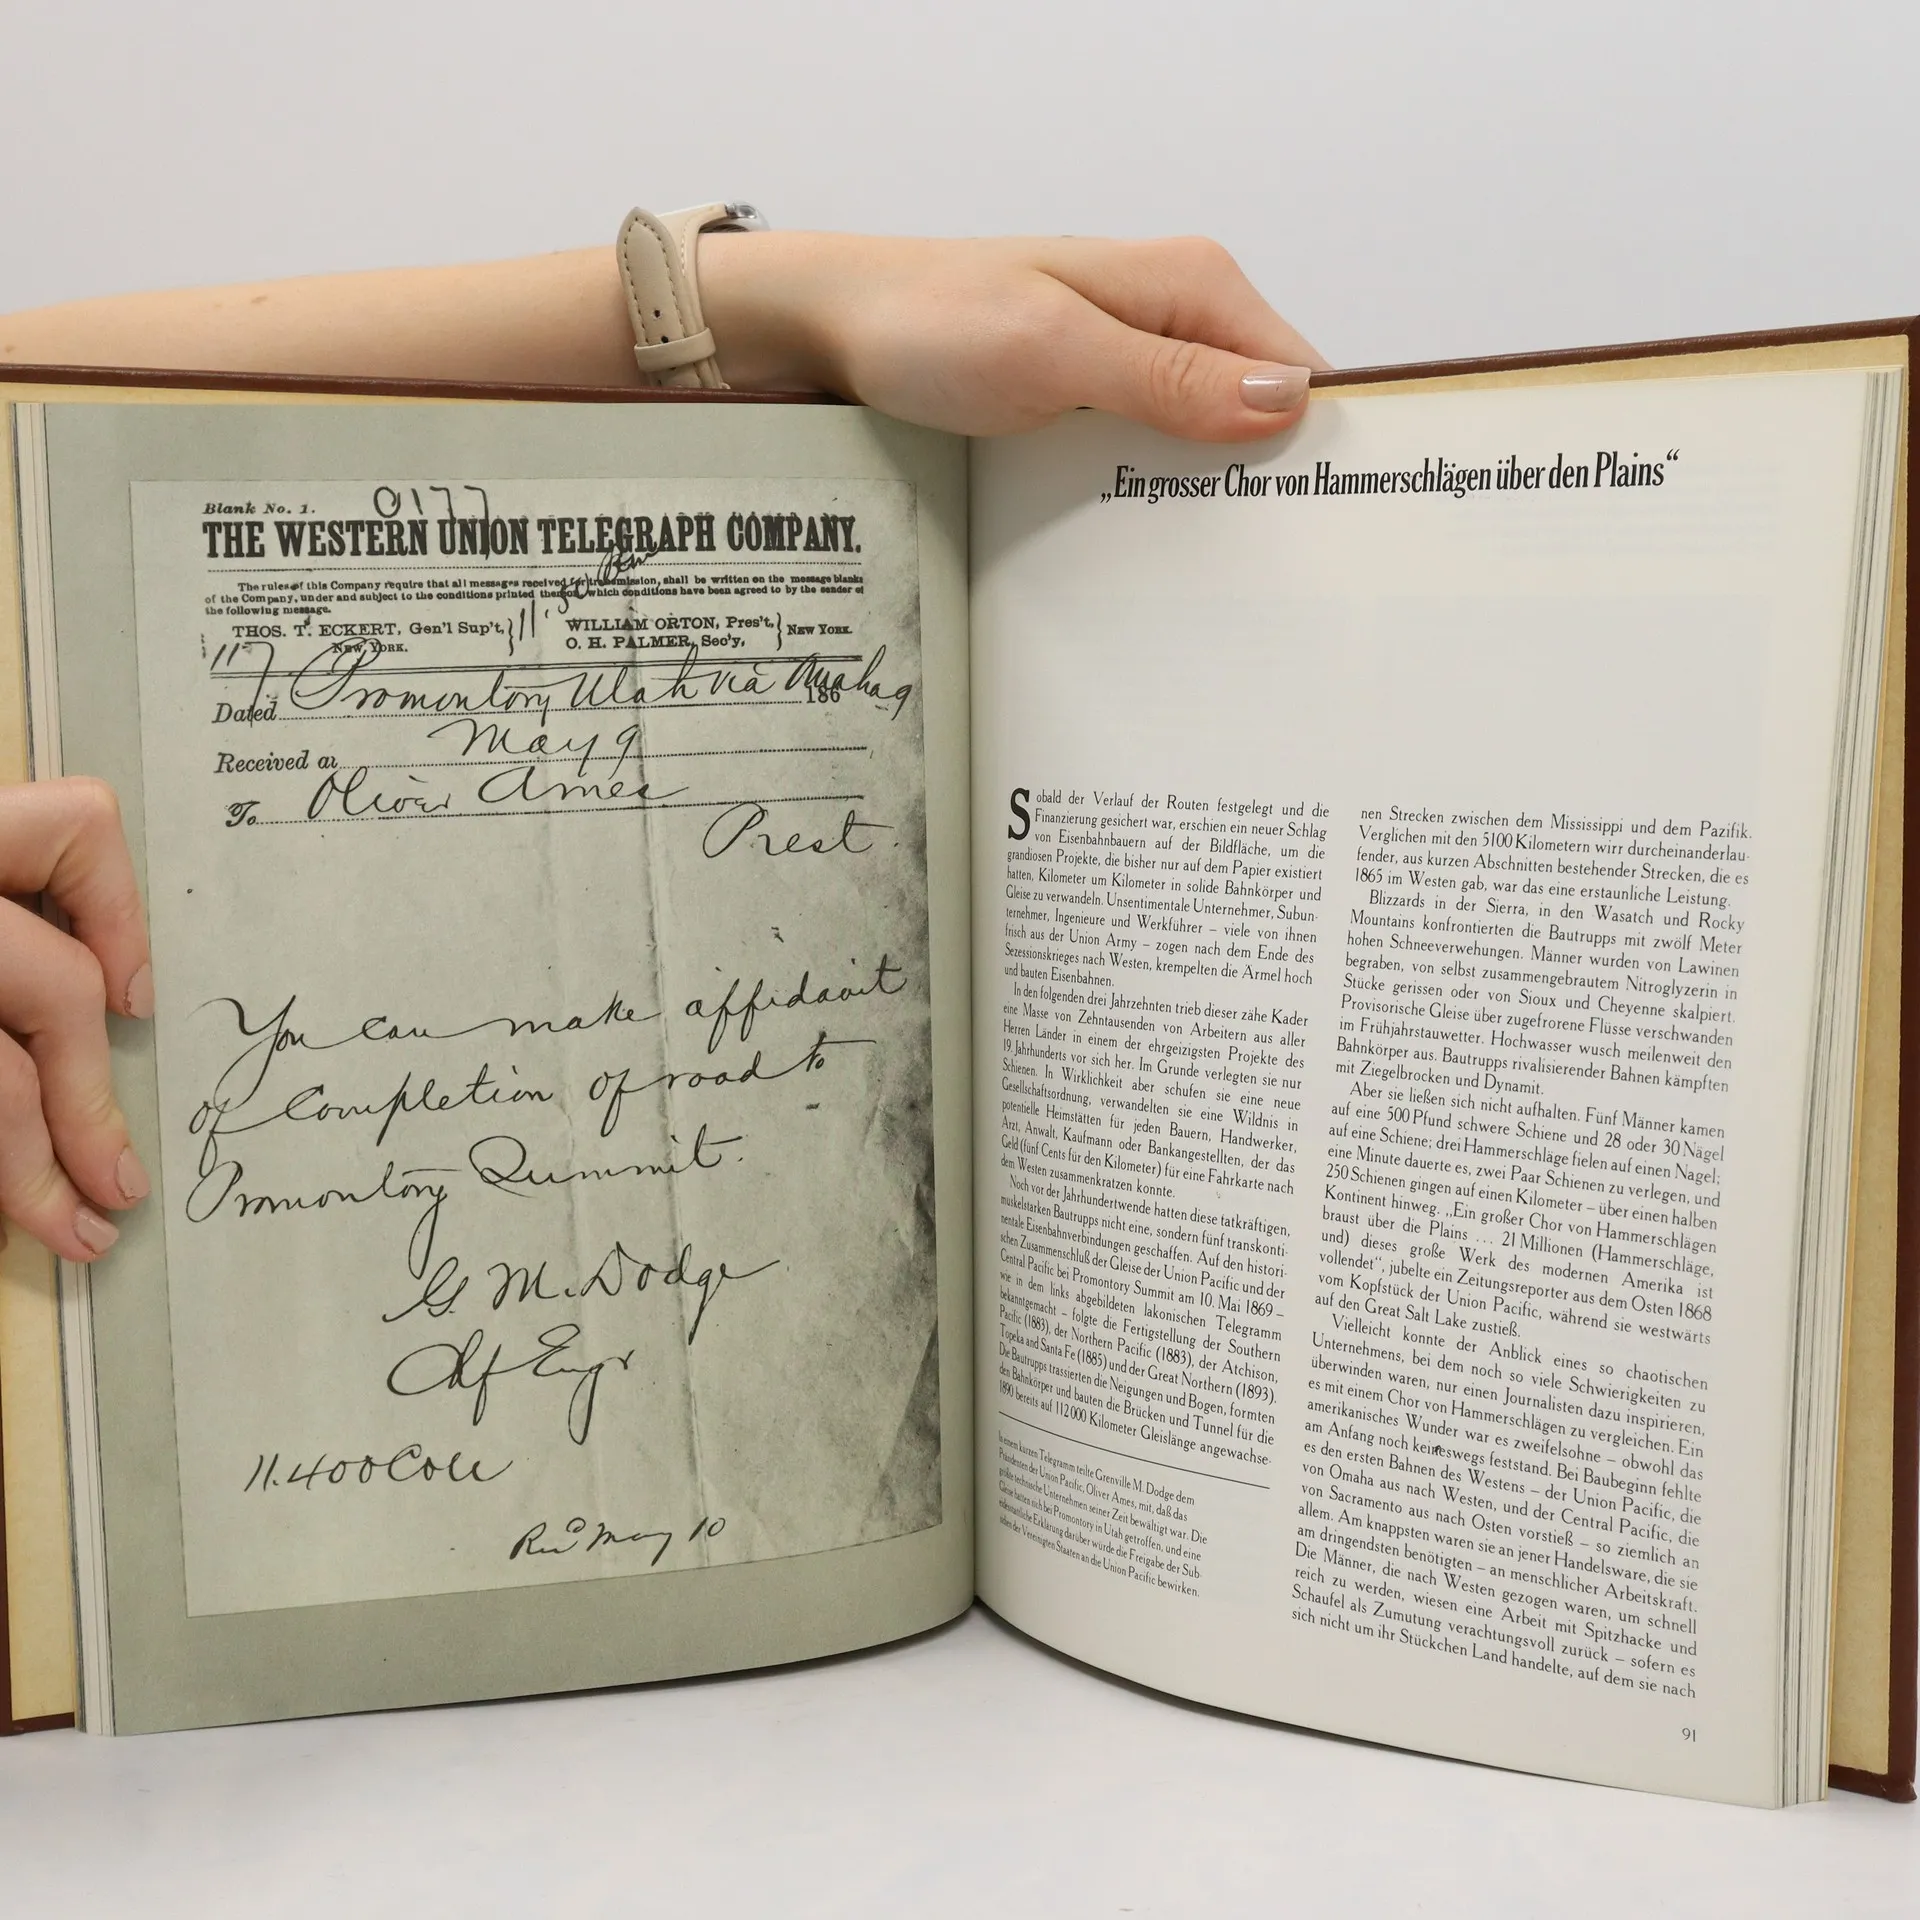 0177
Blank No. 1.
THE WESTERN UNION TELEGRAPH COMPANY.
The rules of this Company require that all messages received for transmission, shall be written on the message blanks
of the Company, under and subject to the conditions printed thereon, which conditions have been agreed to by the sender of
the following message.
THOS. T. ECKERT, Gen'l Sup't, } WILLIAM ORTON, Pres't, } NEW YORK.
NEW YORK. O. H. PALMER, Sec'y,
117
Dated Promontory Utah via Omaha 9 186
Received at May 9
To Oliver Ames
Prest.
You can make affidavit
of completion of road to
Promontory Summit.
G. M. Dodge
Chf Engr
11.400 Coll
Rec'd May 10
„Ein grosser Chor von Hammerschlägen über den Plains“
Sobald der Verlauf der Routen festgelegt und die
Finanzierung gesichert war, erschien ein neuer Schlag
von Eisenbahnbauern auf der Bildfläche, um die
grandiosen Projekte, die bisher nur auf dem Papier existiert
hatten, Kilometer um Kilometer in solide Bahnkörper und
Gleise zu verwandeln. Unsentimentale Unternehmer, Subun-
ternehmer, Ingenieure und Werkführer – viele von ihnen
frisch aus der Union Army – zogen nach dem Ende des
Sezessionskrieges nach Westen, krempelten die Ärmel hoch
und bauten Eisenbahnen.
In den folgenden drei Jahrzehnten trieb dieser zähe Kader
eine Masse von Zehntausenden von Arbeitern aus aller
Herren Länder in einem der ehrgeizigsten Projekte des
19. Jahrhunderts vor sich her. Im Grunde verlegten sie nur
Schienen. In Wirklichkeit aber schufen sie eine neue
Gesellschaftsordnung, verwandelten sie eine Wildnis in
potentielle Heimstätten für jeden Bauern, Handwerker,
Arzt, Anwalt, Kaufmann oder Bankangestellten, der das
Geld (fünf Cents für den Kilometer) für eine Fahrkarte nach
dem Westen zusammenkratzen konnte.
Noch vor der Jahrhundertwende hatten diese tatkräftigen,
muskelstarken Bautrupps nicht eine, sondern fünf transkonti-
nentale Eisenbahnverbindungen geschaffen. Auf den histori-
schen Zusammenschluß der Gleise der Union Pacific und der
Central Pacific bei Promontory Summit am 10. Mai 1869 –
wie in dem links abgebildeten lakonischen Telegramm
bekanntgemacht – folgte die Fertigstellung der Southern
Pacific (1883), der Northern Pacific (1883), der Atchison,
Topeka and Santa Fe (1885) und der Great Northern (1893).
Die Bautrupps trassierten die Neigungen und Bogen, formten
den Bahnkörper und bauten die Brücken und Tunnel für die
1890 bereits auf 112 000 Kilometer Gleislänge angewachse-
In einem kurzen Telegramm teilte Grenville M. Dodge dem
Präsidenten der Union Pacific, Oliver Ames, mit, daß das
größte technische Unternehmen seiner Zeit bewältigt war. Die
Gleise hatten sich bei Promontory in Utah getroffen, und eine
eidesstattliche Erklärung darüber würde die Freigabe der Sub-
sidien der Vereinigten Staaten an die Union Pacific bewirken.
nen Strecken zwischen dem Mississippi und dem Pazifik.
Verglichen mit den 5100 Kilometern wirr durcheinanderlau-
fender, aus kurzen Abschnitten bestehender Strecken, die es
1865 im Westen gab, war das eine erstaunliche Leistung.
Blizzards in der Sierra, in den Wasatch und Rocky
Mountains konfrontierten die Bautrupps mit zwölf Meter
hohen Schneeverwehungen. Männer wurden von Lawinen
begraben, von selbst zusammengebrautem Nitroglyzerin in
Stücke gerissen oder von Sioux und Cheyenne skalpiert.
Provisorische Gleise über zugefrorene Flüsse verschwanden
im Frühjahrstauwetter. Hochwasser wusch meilenweit den
Bahnkörper aus. Bautrupps rivalisierender Bahnen kämpften
mit Ziegelbrocken und Dynamit.
Aber sie ließen sich nicht aufhalten. Fünf Männer kamen
auf eine 500 Pfund schwere Schiene und 28 oder 30 Nägel
auf eine Schiene; drei Hammerschläge fielen auf einen Nagel;
eine Minute dauerte es, zwei Paar Schienen zu verlegen, und
250 Schienen gingen auf einen Kilometer – über einen halben
Kontinent hinweg. „Ein großer Chor von Hammerschlägen
braust über die Plains ... 21 Millionen (Hammerschläge,
und) dieses große Werk des modernen Amerika ist
vollendet“, jubelte ein Zeitungsreporter aus dem Osten 1868
vom Kopfstück der Union Pacific, während sie westwärts
auf den Great Salt Lake zustieß.
Vielleicht konnte der Anblick eines so chaotischen
Unternehmens, bei dem noch so viele Schwierigkeiten zu
überwinden waren, nur einen Journalisten dazu inspirieren,
es mit einem Chor von Hammerschlägen zu vergleichen. Ein
amerikanisches Wunder war es zweifelsohne – obwohl das
am Anfang noch keineswegs feststand. Bei Baubeginn fehlte
es den ersten Bahnen des Westens – der Union Pacific, die
von Omaha aus nach Westen, und der Central Pacific, die
von Sacramento aus nach Osten vorstieß – so ziemlich an
allem. Am knappsten waren sie an jener Handelsware, die sie
am dringendsten benötigten – an menschlicher Arbeitskraft.
Die Männer, die nach Westen gezogen waren, um schnell
reich zu werden, wiesen eine Arbeit mit Spitzhacke und
Schaufel als Zumutung verachtungsvoll zurück – sofern es
sich nicht um ihr Stückchen Land handelte, auf dem sie nach
91